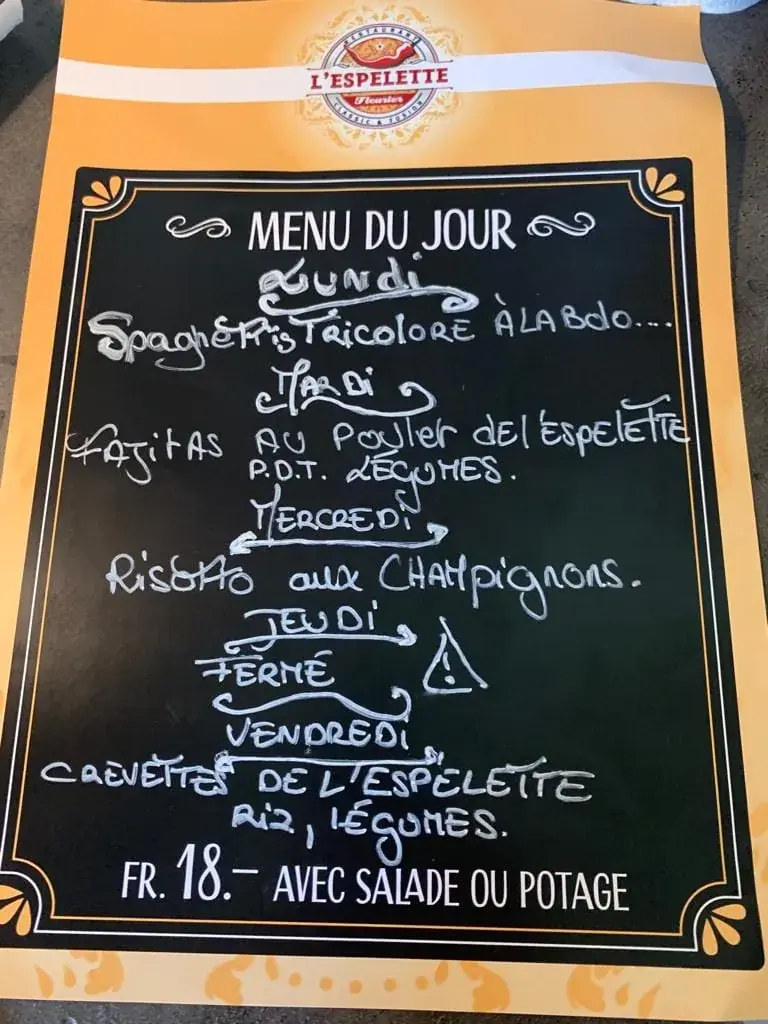 RESTAURANT
L'ESPELETTE
Fleurier
CLASSIC & FUSION
MENU DU JOUR
Lundi
Spaghettis Tricolore À LA Bolo...
Mardi
Fajitas au Poulet de l'Espelette
P.D.T. Légumes.
Mercredi
Risotto aux Champignons.
Jeudi
Fermé
Vendredi
Crevettes de l'Espelette
Riz, légumes.
FR. 18.– AVEC SALADE OU POTAGE